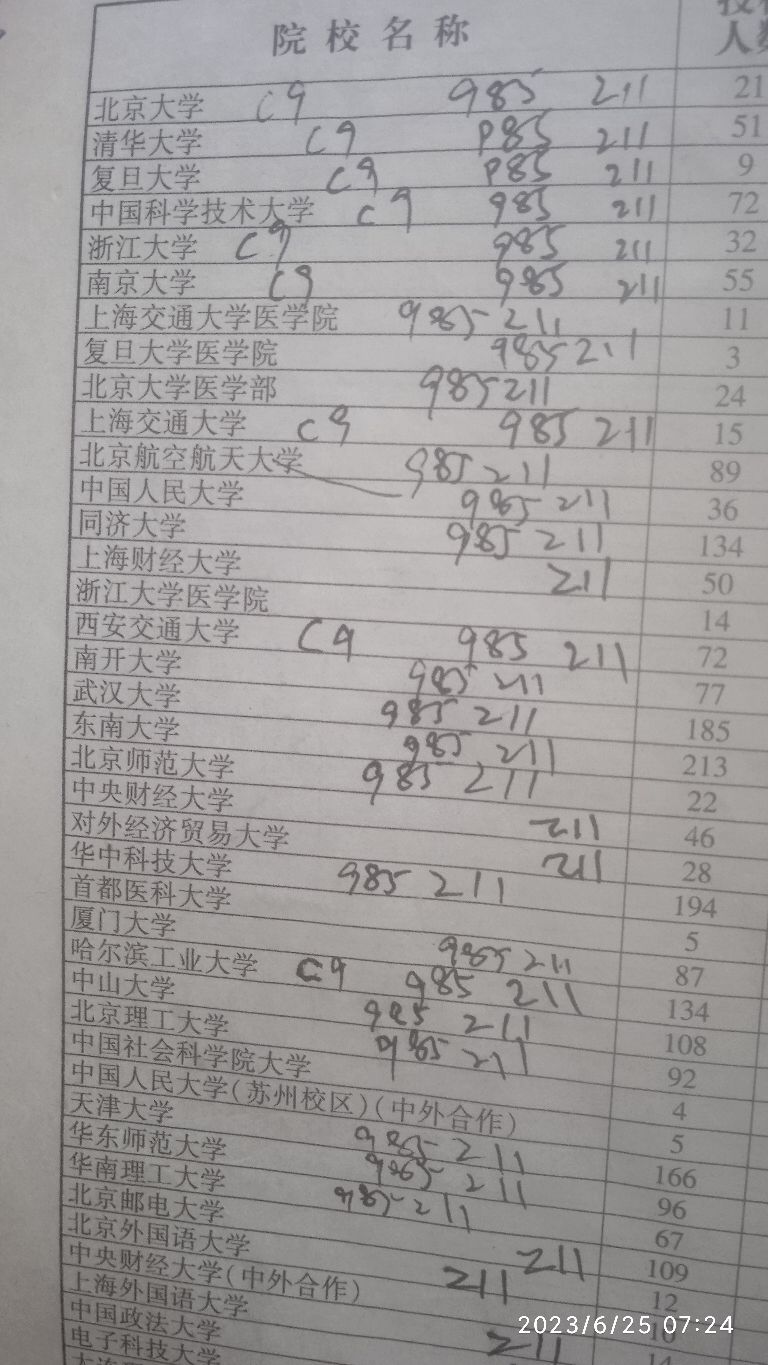 院校名称
人数
北京大学 C9 985 211 21
清华大学 C9 985 211 51
复旦大学 C9 985 211 9
中国科学技术大学 C9 985 211 72
浙江大学 C9 985 211 32
南京大学 C9 985 211 55
上海交通大学医学院 985 211 11
复旦大学医学院 985 211 3
北京大学医学部 985 211 24
上海交通大学 C9 985 211 15
北京航空航天大学 985 211 89
中国人民大学 985 211 36
同济大学 985 211 134
上海财经大学 211 50
浙江大学医学院 14
西安交通大学 C9 985 211 72
南开大学 985 211 77
武汉大学 985 211 185
东南大学 985 211 213
北京师范大学 985 211 22
中央财经大学 211 46
对外经济贸易大学 211 28
华中科技大学 985 211 194
首都医科大学 5
厦门大学 985 211 87
哈尔滨工业大学 C9 985 211 134
中山大学 985 211 108
北京理工大学 985 211 92
中国社会科学院大学 4
中国人民大学(苏州校区)(中外合作) 5
天津大学 985 211 166
华东师范大学 985 211 96
华南理工大学 985 211 67
北京邮电大学 211 109
北京外国语大学 211 12
中央财经大学(中外合作)
上海外国语大学 211
中国政法大学
电子科技大学
2023/6/25 07:24